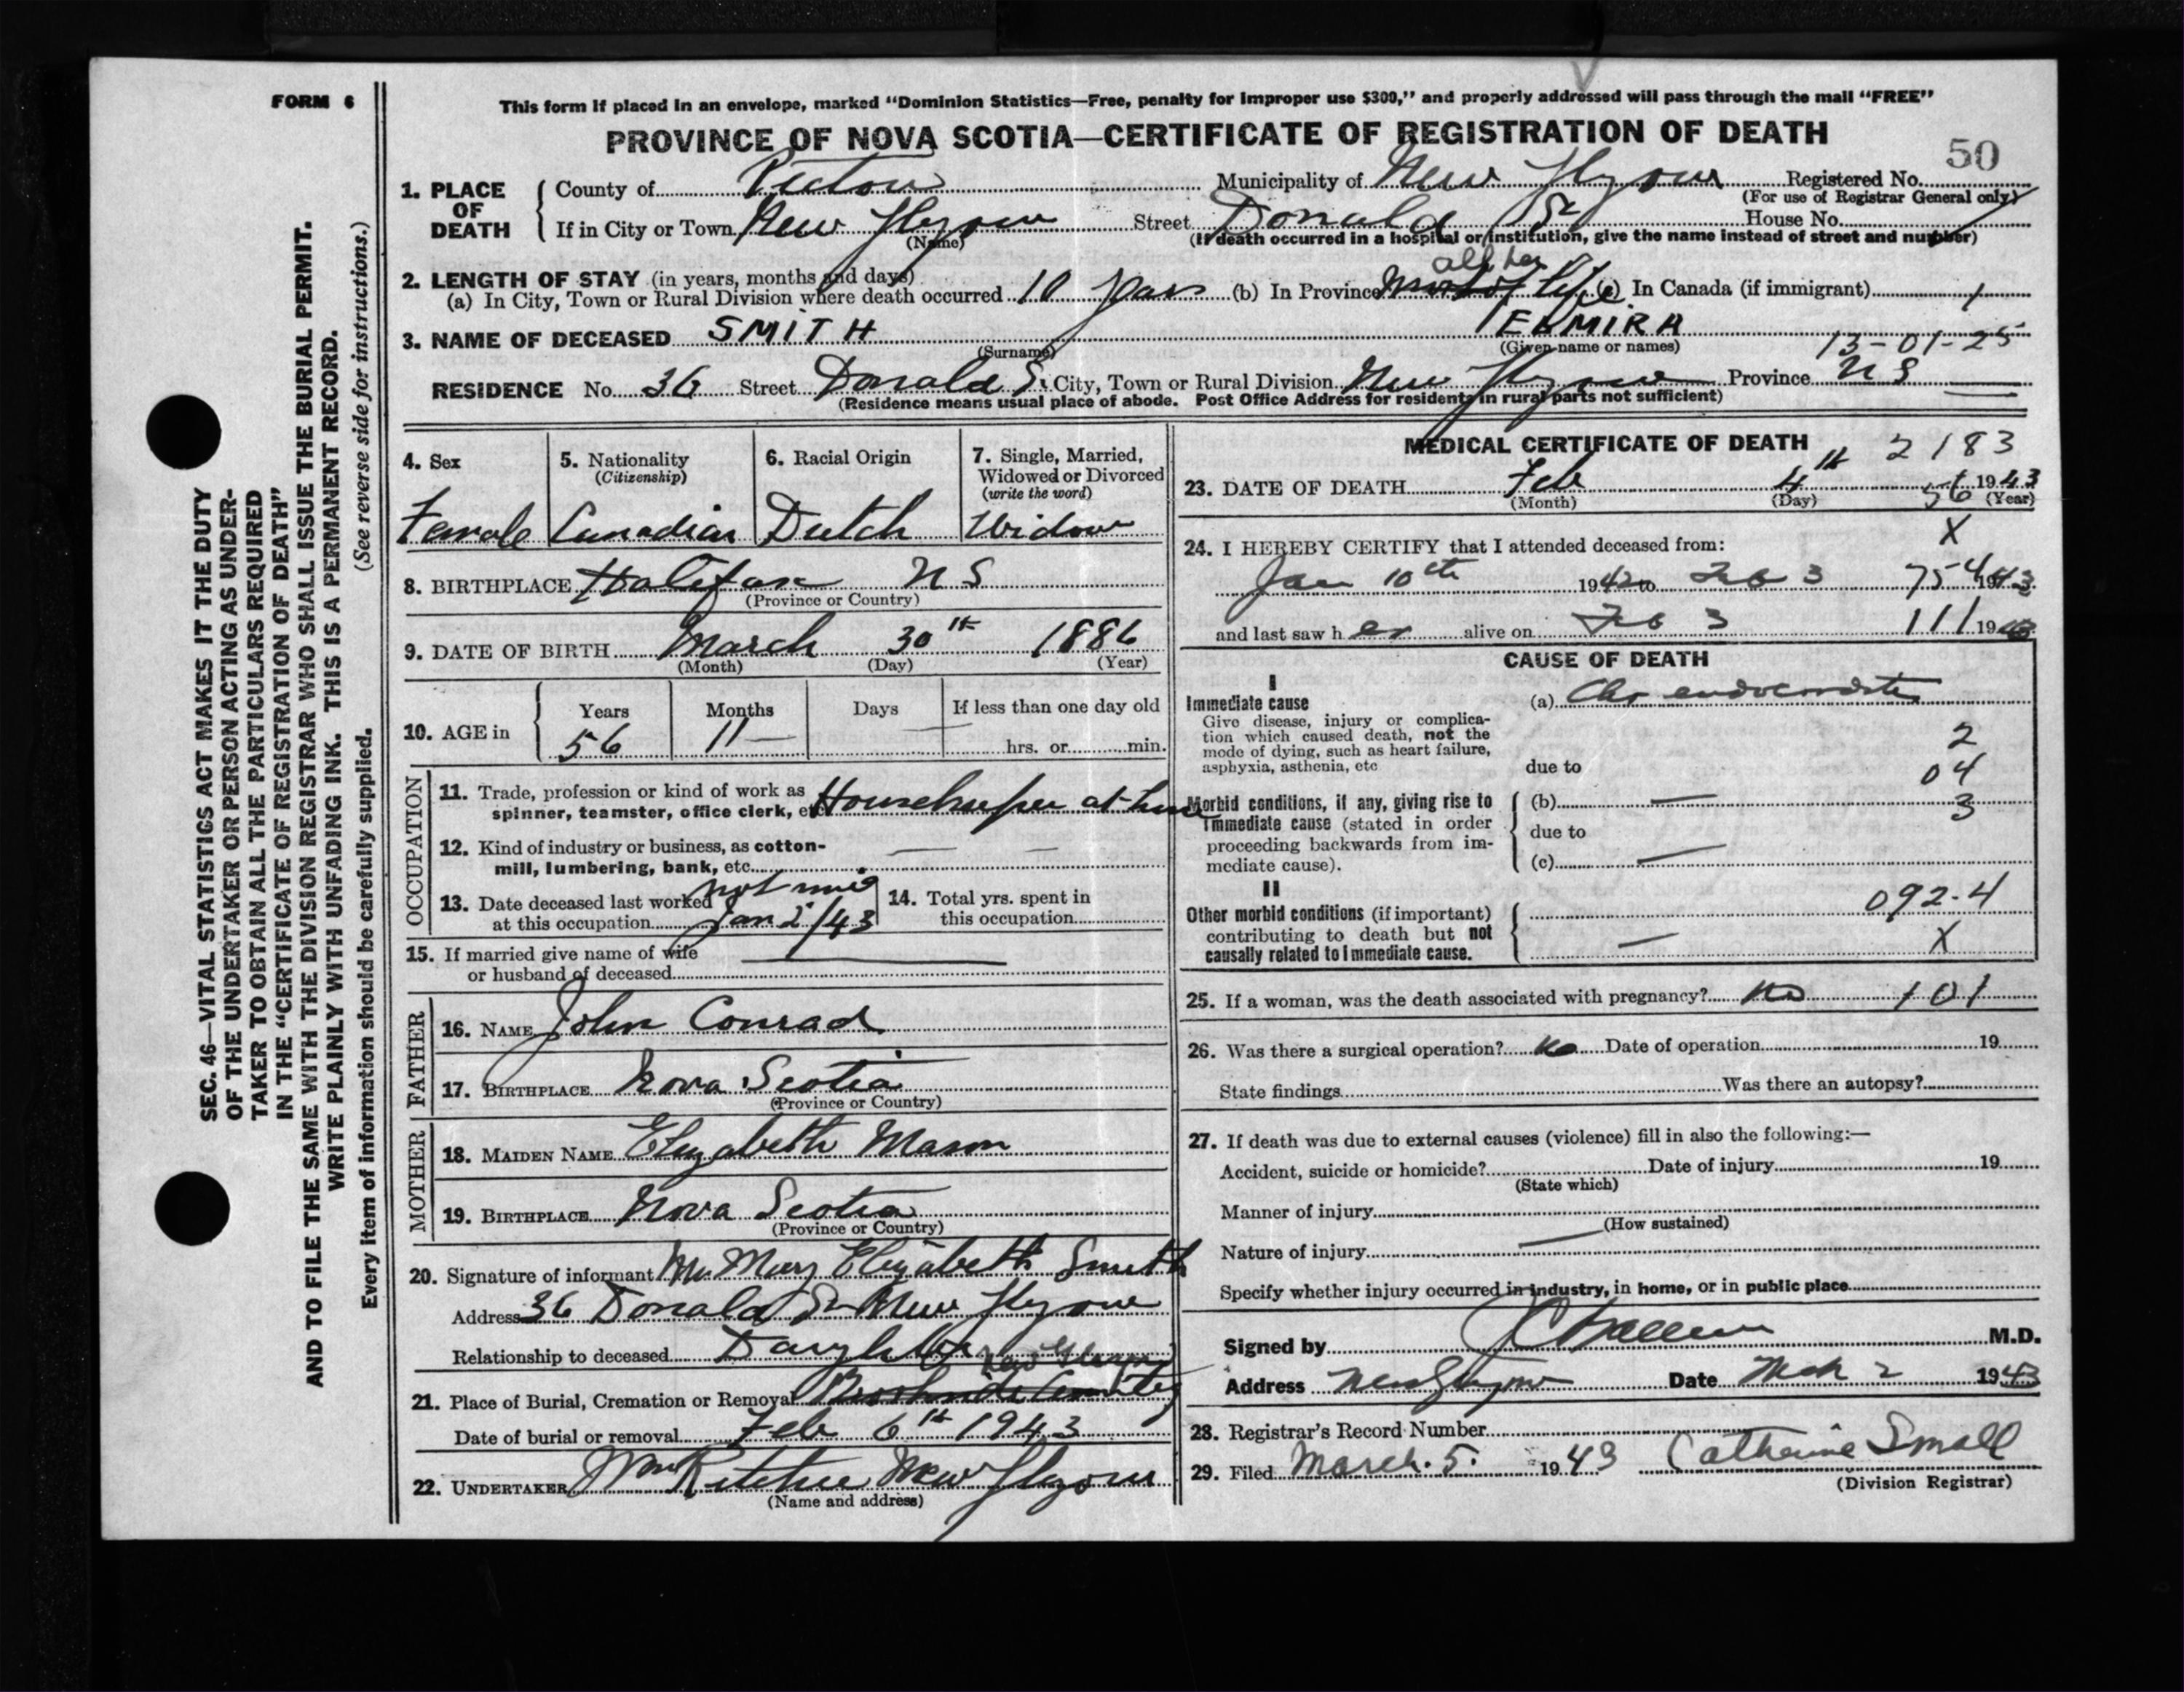 FORM 6
This form if placed in an envelope, marked "Dominion Statistics—Free, penalty for improper use $300," and properly addressed will pass through the mail "FREE"
PROVINCE OF NOVA SCOTIA—CERTIFICATE OF REGISTRATION OF DEATH
50
1. PLACE OF DEATH
County of Pictou Municipality of New Glasgow Registered No.
(For use of Registrar General only)
If in City or Town New Glasgow Street Donald St House No.
(Name) (If death occurred in a hospital or institution, give the name instead of street and number)
2. LENGTH OF STAY (in years, months and days)
all her
(a) In City, Town or Rural Division where death occurred 10 years (b) In Province Most of life (c) In Canada (if immigrant)
3. NAME OF DECEASED SMITH ELMIRA
(Surname) (Given name or names)
13-01-25
RESIDENCE No. 36 Street Donald St City, Town or Rural Division New Glasgow Province N S
(Residence means usual place of abode. Post Office Address for residents in rural parts not sufficient)
4. Sex
Female
5. Nationality
(Citizenship)
Canadian
6. Racial Origin
Dutch
7. Single, Married,
Widowed or Divorced
(write the word)
Widow
8. BIRTHPLACE Halifax N S
(Province or Country)
9. DATE OF BIRTH March 30th 1886
(Month) (Day) (Year)
10. AGE in
Years Months Days If less than one day old
56 11 — —
hrs. or min.
OCCUPATION
11. Trade, profession or kind of work as
spinner, teamster, office clerk, etc. Housekeeper at home
12. Kind of industry or business, as cotton-
mill, lumbering, bank, etc. — —
13. Date deceased last worked
at this occupation Jan 2/43
14. Total yrs. spent in
this occupation
15. If married give name of wife
or husband of deceased
FATHER
16. NAME John Conrad
17. BIRTHPLACE Nova Scotia
(Province or Country)
MOTHER
18. MAIDEN NAME Elizabeth Mason
19. BIRTHPLACE Nova Scotia
(Province or Country)
20. Signature of informant Mrs Mary Elizabeth Smith
Address 36 Donald St New Glasgow
Relationship to deceased Daughter
New Glasgow
21. Place of Burial, Cremation or Removal Cemetery
Date of burial or removal Feb 6th 1943
22. UNDERTAKER Wm Ritchie New Glasgow
(Name and address)
MEDICAL CERTIFICATE OF DEATH
2183
23. DATE OF DEATH Feb 4th 1943
(Month) (Day) (Year)
56
X
24. I HEREBY CERTIFY that I attended deceased from:
Jan 10th 1942 to Feb 3 1943
754
and last saw her alive on Feb 3 1943
111
CAUSE OF DEATH
I
Immediate cause
Give disease, injury or complica-
tion which caused death, not the
mode of dying, such as heart failure,
asphyxia, asthenia, etc
(a) Chr endocarditis
2
due to
04
Morbid conditions, if any, giving rise to
immediate cause (stated in order
proceeding backwards from im-
mediate cause).
(b) —
3
due to
(c) —
II
Other morbid conditions (if important)
contributing to death but not
causally related to immediate cause.
092-4
— X
25. If a woman, was the death associated with pregnancy? No 101
26. Was there a surgical operation? No Date of operation 19
State findings Was there an autopsy?
27. If death was due to external causes (violence) fill in also the following:—
Accident, suicide or homicide? Date of injury 19
(State which)
Manner of injury
(How sustained)
Nature of injury
Specify whether injury occurred in industry, in home, or in public place
Signed by M.D.
Address New Glasgow Date Mch 2 1943
28. Registrar's Record Number
29. Filed March 5. 1943 Catherine Small
(Division Registrar)
SEC. 46—VITAL STATISTICS ACT MAKES IT THE DUTY
OF THE UNDERTAKER OR PERSON ACTING AS UNDER-
TAKER TO OBTAIN ALL THE PARTICULARS REQUIRED
IN THE "CERTIFICATE OF REGISTRATION OF DEATH"
AND TO FILE THE SAME WITH THE DIVISION REGISTRAR WHO SHALL ISSUE THE BURIAL PERMIT.
WRITE PLAINLY WITH UNFADING INK. THIS IS A PERMANENT RECORD.
Every item of information should be carefully supplied. (See reverse side for instructions.)